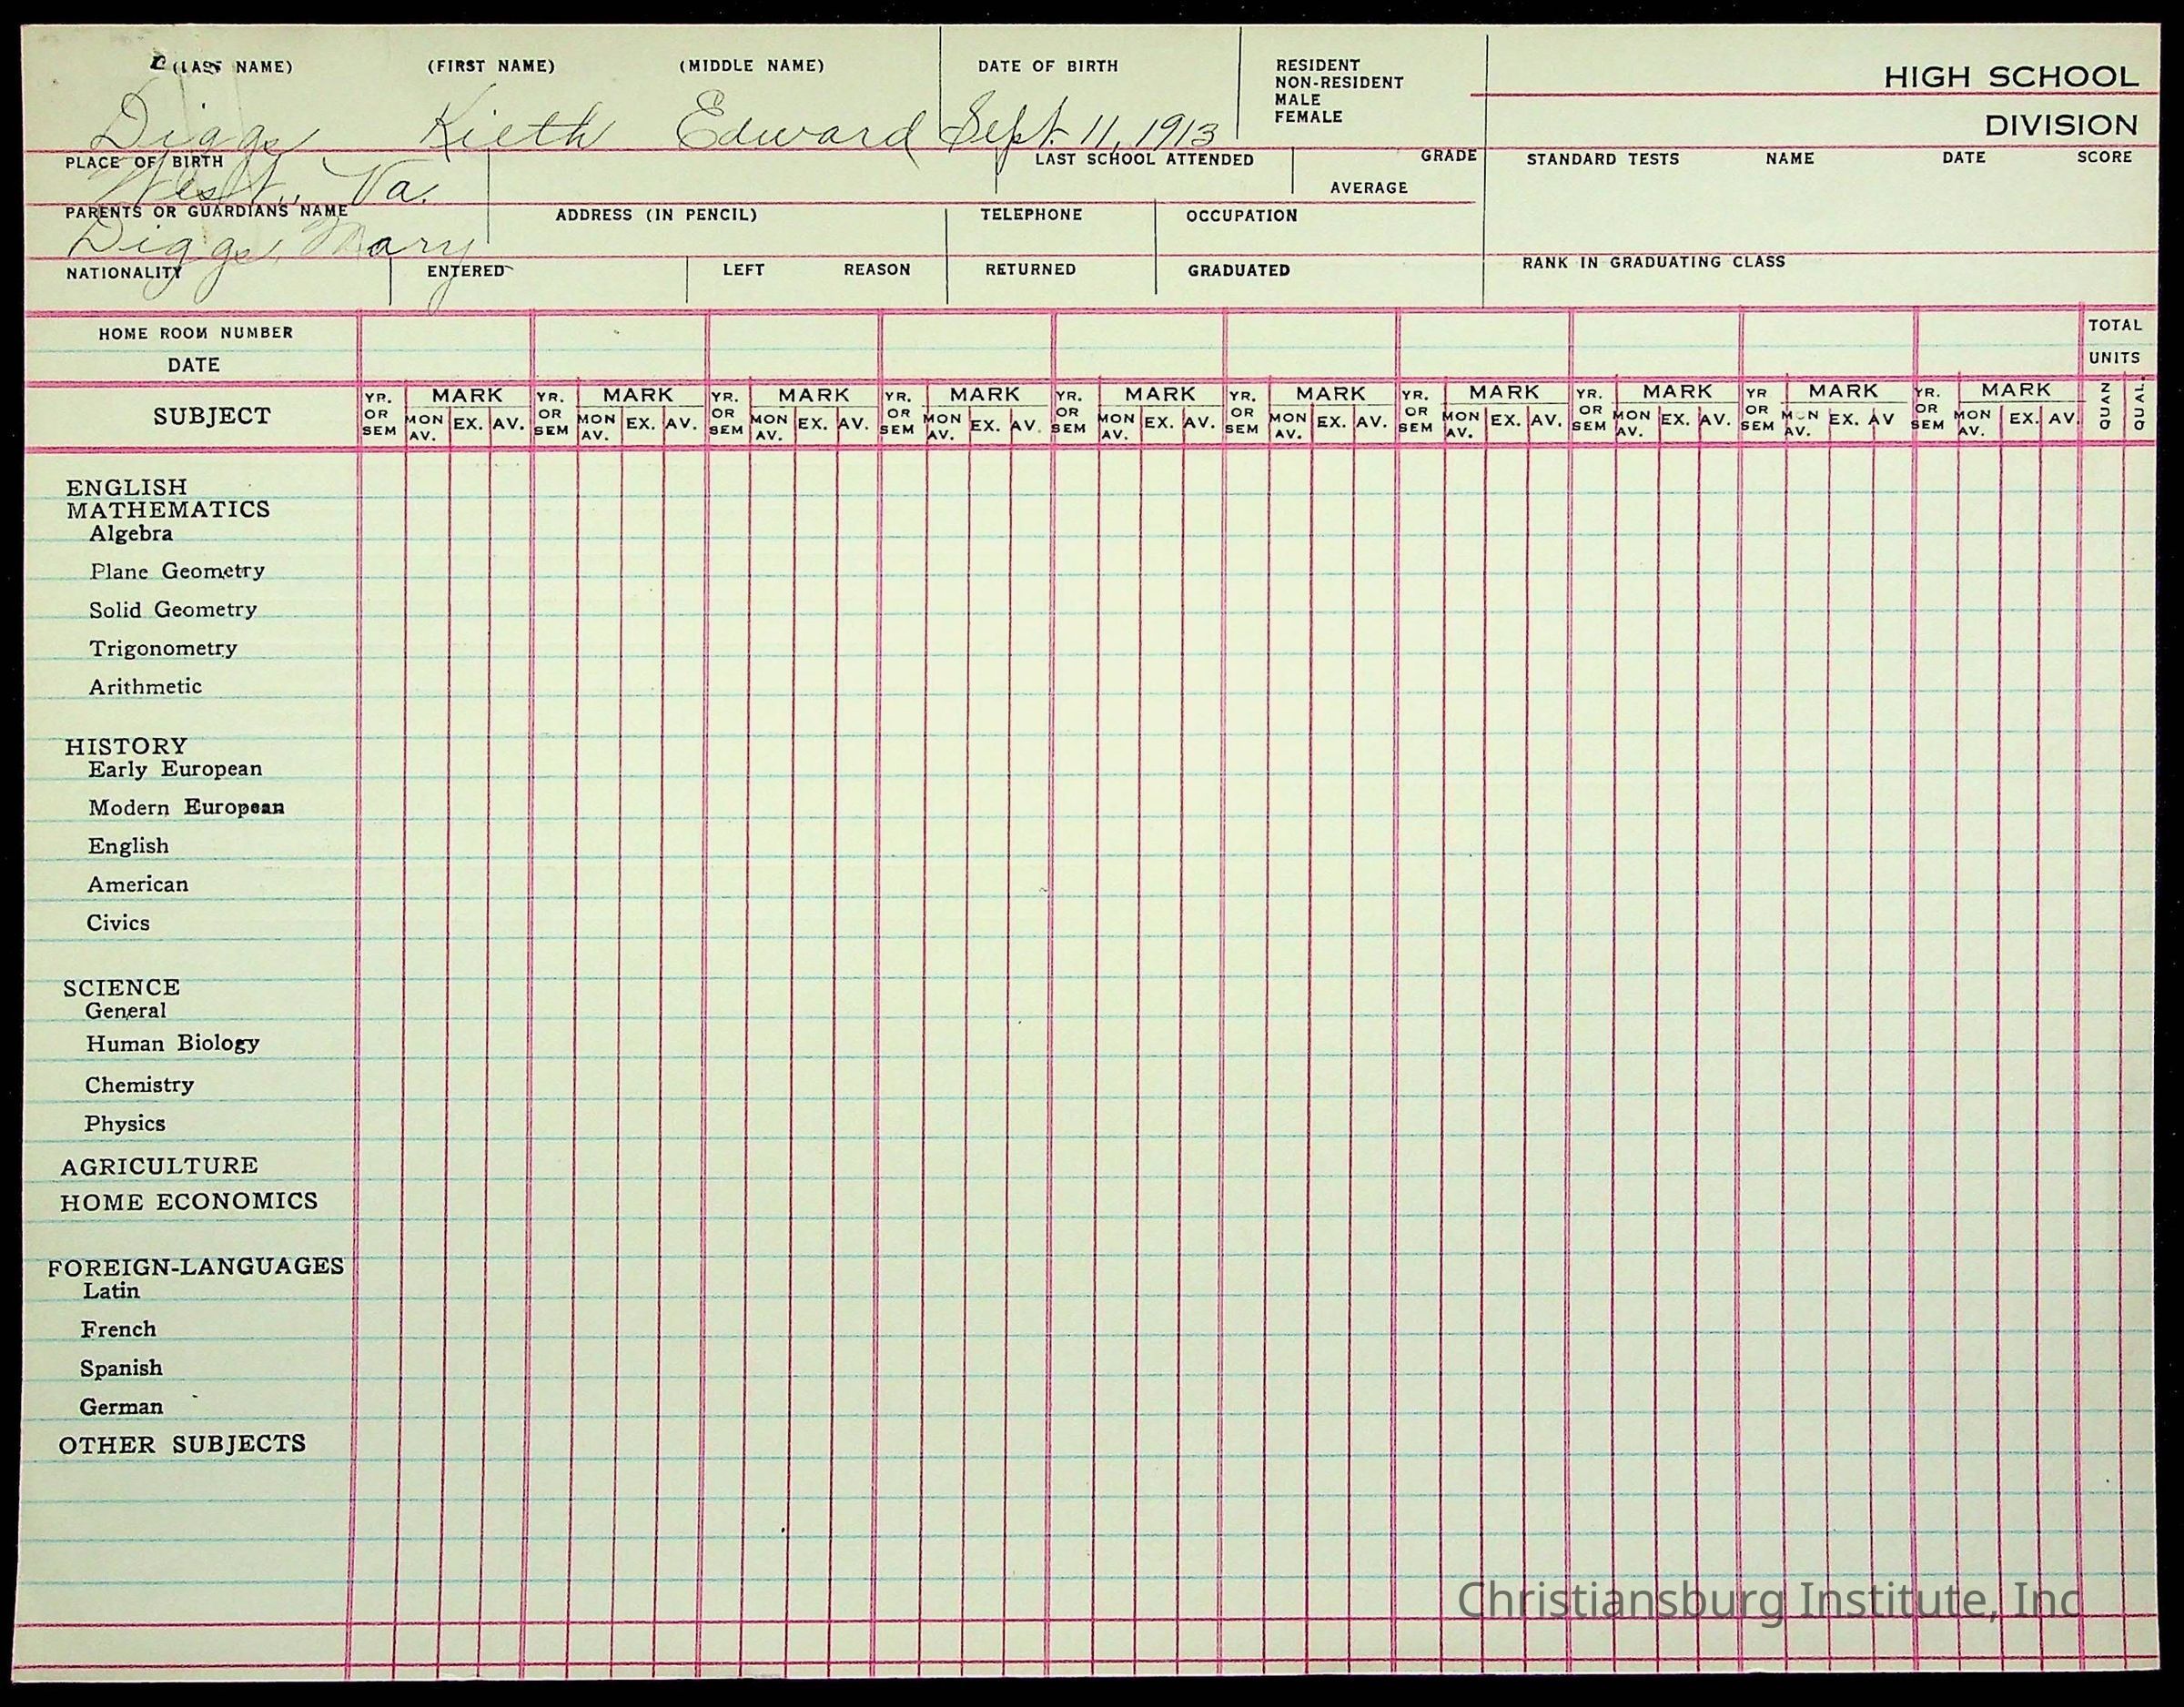 (LAST NAME) (FIRST NAME) (MIDDLE NAME) DATE OF BIRTH RESIDENT
NON-RESIDENT
MALE
FEMALE
HIGH SCHOOL
DIVISION
Diggs Kieth Edward Sept. 11, 1913
PLACE OF BIRTH LAST SCHOOL ATTENDED GRADE STANDARD TESTS NAME DATE SCORE
AVERAGE
West, Va.
PARENTS OR GUARDIANS NAME ADDRESS (IN PENCIL) TELEPHONE OCCUPATION
Diggs, Mary
NATIONALITY ENTERED LEFT REASON RETURNED GRADUATED RANK IN GRADUATING CLASS
HOME ROOM NUMBER TOTAL
DATE UNITS
SUBJECT
YR. OR SEM MARK MON AV. EX. AV.
YR. OR SEM MARK MON AV. EX. AV.
YR. OR SEM MARK MON AV. EX. AV.
YR. OR SEM MARK MON AV. EX. AV.
YR. OR SEM MARK MON AV. EX. AV.
YR. OR SEM MARK MON AV. EX. AV.
YR. OR SEM MARK MON AV. EX. AV.
YR. OR SEM MARK MON AV. EX. AV.
YR OR SEM MARK MON AV. EX. AV
YR. OR SEM MARK MON AV. EX. AV.
QUAN QUAL.
ENGLISH
MATHEMATICS
Algebra
Plane Geometry
Solid Geometry
Trigonometry
Arithmetic
HISTORY
Early European
Modern European
English
American
Civics
SCIENCE
General
Human Biology
Chemistry
Physics
AGRICULTURE
HOME ECONOMICS
FOREIGN-LANGUAGES
Latin
French
Spanish
German
OTHER SUBJECTS
Christiansburg Institute, Inc